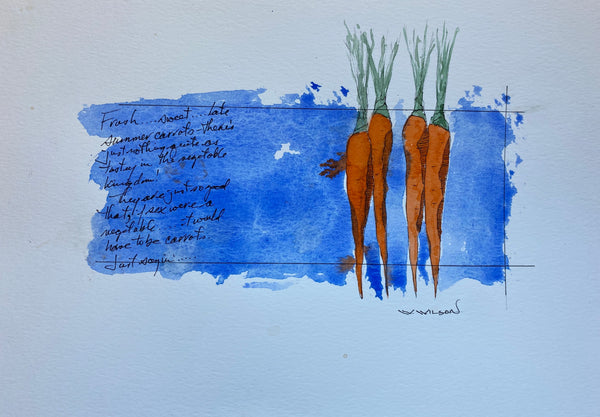 Fresh... sweet... late
summer carrots - there's
just nothing quite as
tasty in the vegetable
kingdom!
They are just so good
that if sex were a
vegetable it would
have to be carrots.
Just sayin.....
W WILSON